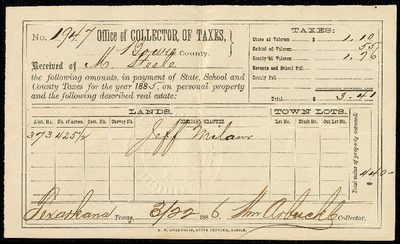 No. 1947 Office of COLLECTOR, OF TAXES,
Bowie County.
Received of M. Steele
the following amounts, in payment of State, School and
County Taxes for the year 1885, on personal property
and the following described real estate:
TAXES:
State ad Valorem $ 1.10
School ad Valorem 55
County ad Valorem 1.76
Revenue and School Poll
County Poll
Total $ 3.41
LANDS.
Abst. No. No. of Acres. Cert. No. Survey No. ORIGINAL GRANTEE
373 425½ Jeff Milam
TOWN LOTS.
Lot No. Block No. Out Lot No.
Total value of property assessed:
440
Texarkana Texas, 3/22 1886, Wm Arbuckle Collector.